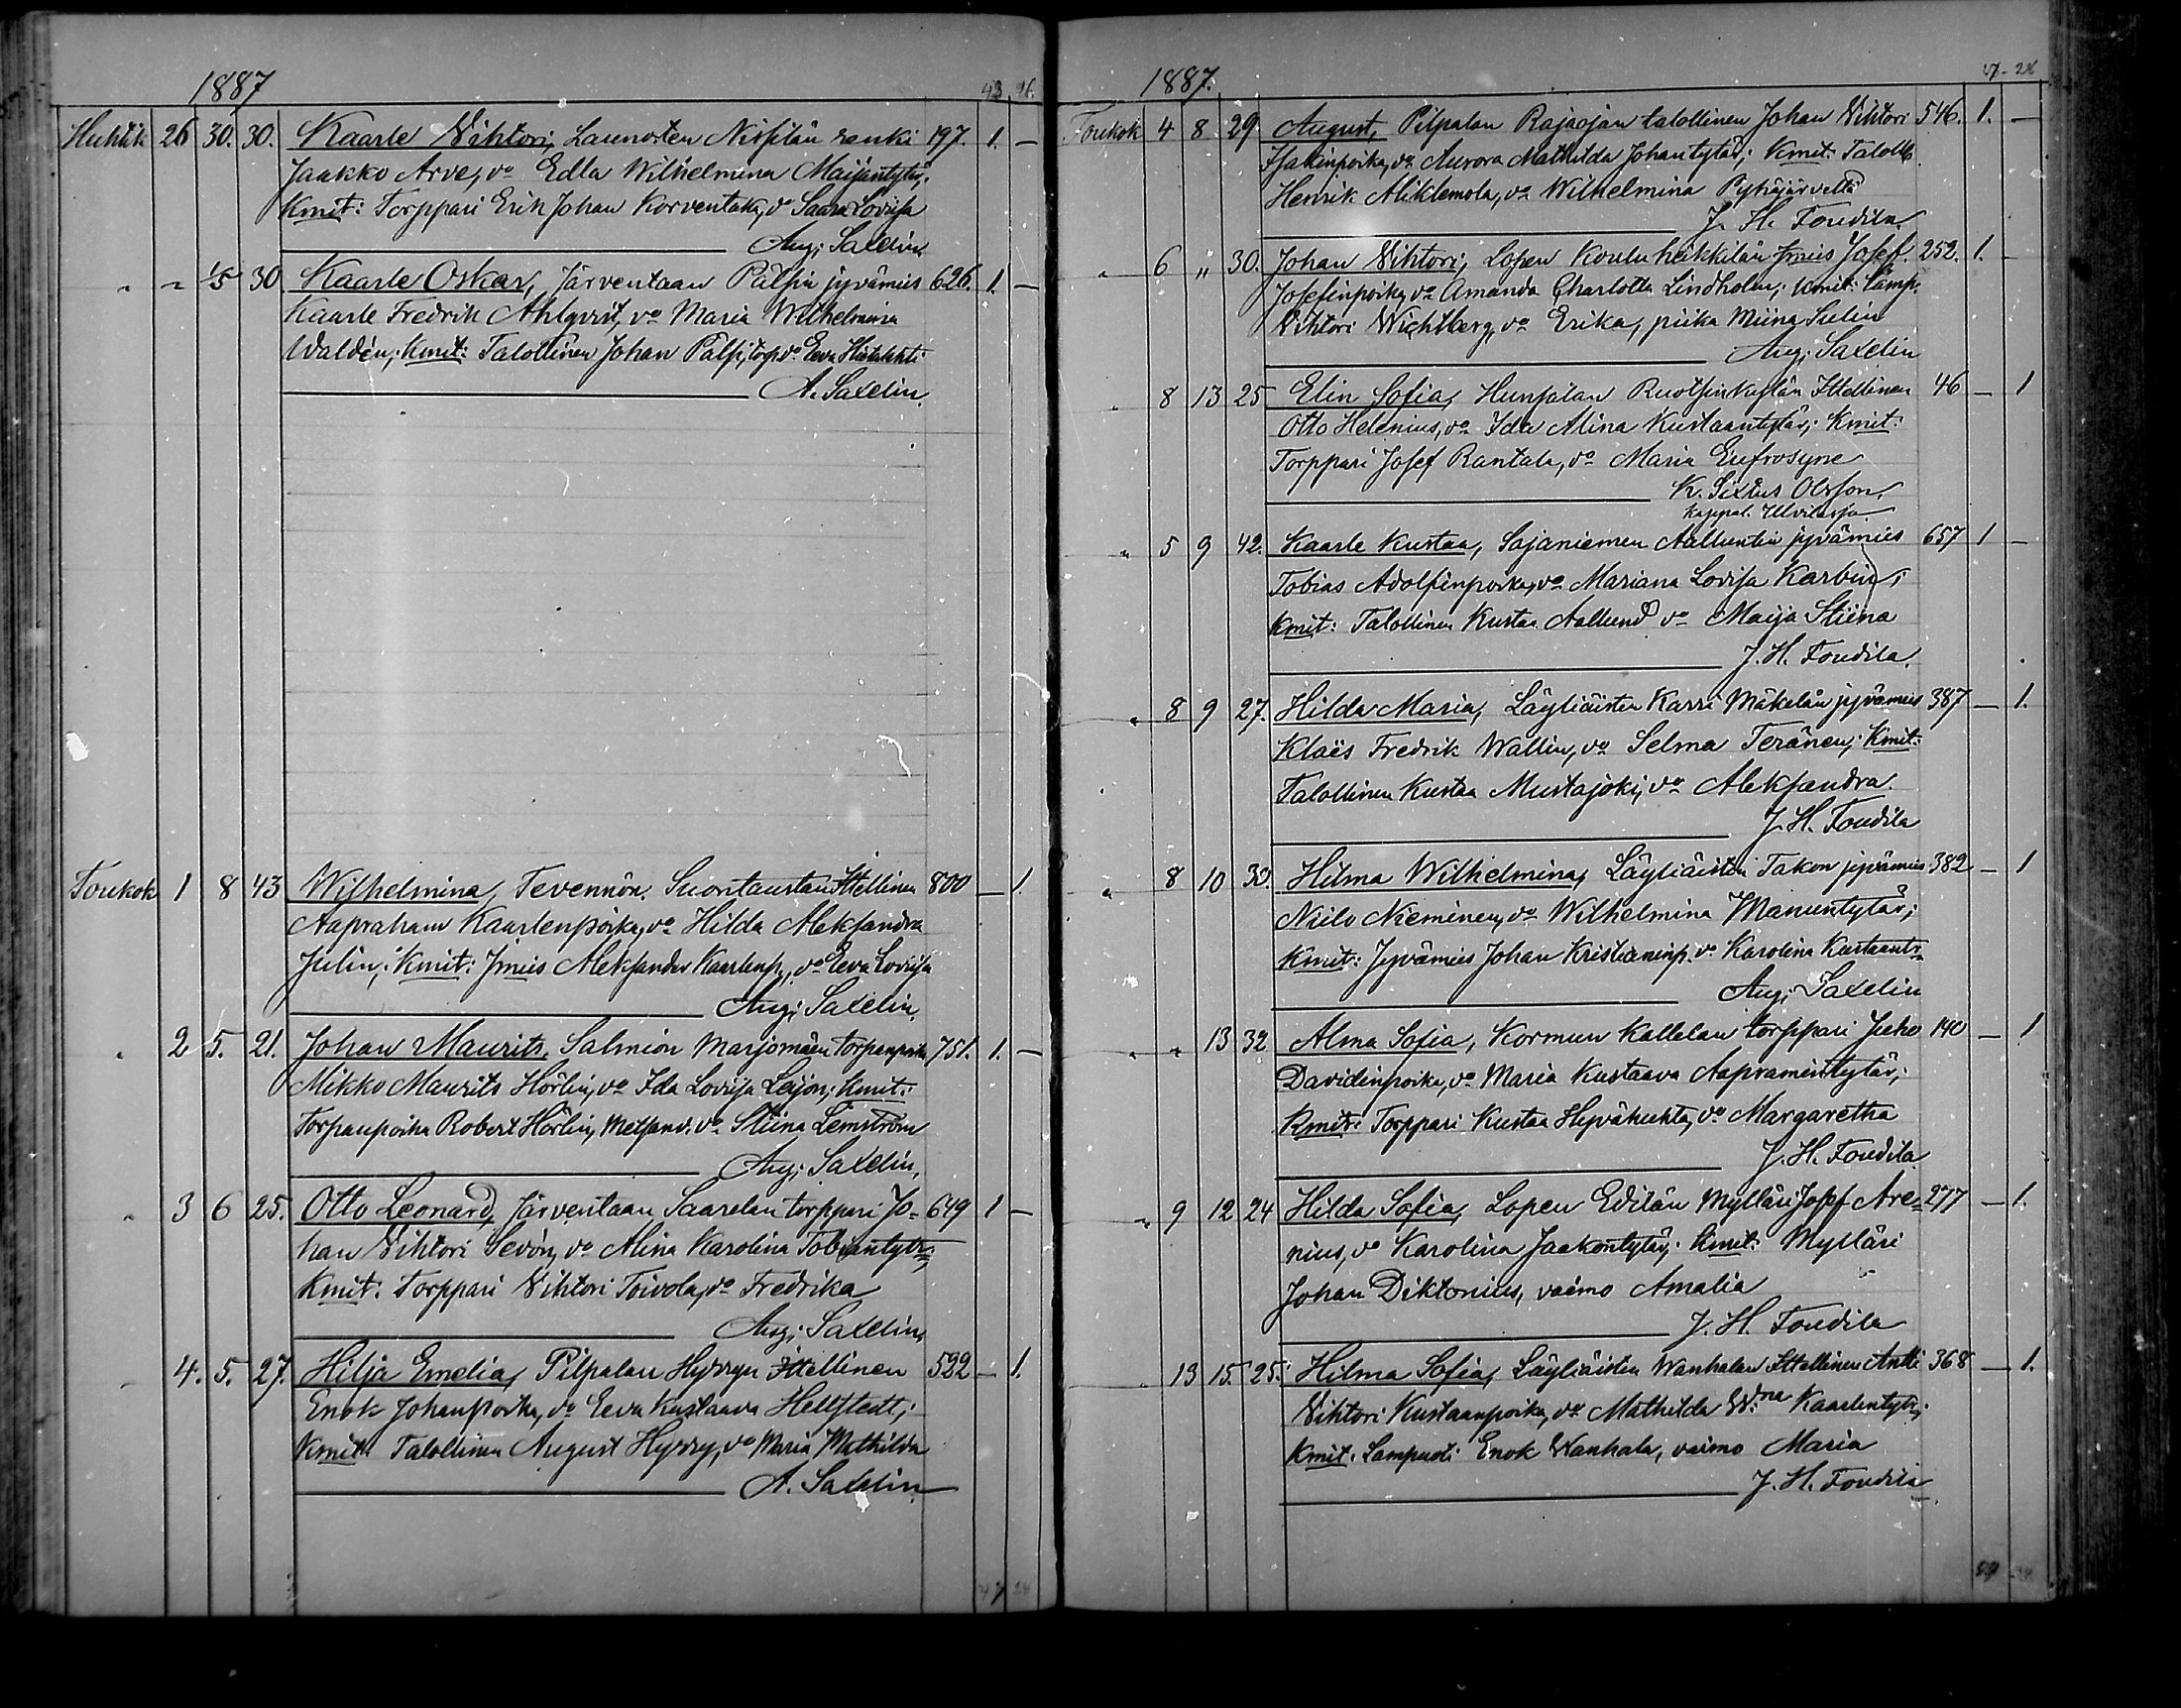 1887 43 26.
Huhtik 26 30. 30. Kaarle Vihtori, Launosten Nissilän renki 197. 1. —
Jaakko Arve, vo Edla Wilhelmina Maijantytär;
Kmit: Torppari Erik Johan Korventaka, vo Saara Lovisa
Aug. Saxelin
" " 1/5 30 Kaarle Oskar, Järventaan Pälsin jyvämies 626. 1. —
Kaarle Fredrik Ahlqvist, vo Maria Wilhelmina
Waldén; Kmit: Talollinen Johan Pälsi, torp. vo Eeva Hietalahti
A. Saxelin.
Toukok 1 8 43 Wilhelmina, Tevennön Suontaustan Ittellinen 800 — 1.
Aapraham Kaarlenpoika, vo Hilda Aleksandra
Julin; Kmit: Jmies Aleksander Kaarlenp., vo Eeva Lovisa
Aug. Saxelin.
" 2 5. 21. Johan Maurits, Salmion Marjomäen torpanpoika 751. 1. —
Mikko Maurits Hörlin, vo Ida Lovisa Leijon; Kmit:
Torpanpoika Robert Hörlin, Metsänv. vo Stiina Lemström
Aug. Saxelin.
" 3 6 25. Otto Leonard, Järventaan Saarelan torppari Jo= 649 1 —
han Vihtori Sevón, vo Alina Karolina Tobiantytr;
Kmit: Torppari Vihtori Toivola, vo Fredrika
Aug. Saxelin
" 4. 5. 27. Hilja Emelia, Pilpalan Hyrryn Ittellinen 522 — 1.
Enok Johanpoika, vo Eeva Kustaava Hellstedt;
Kmit: Talollinen August Hyrry, vo Maria Mathilda
A. Saxelin
47 28
1887. 47 - 28
Toukok 4 8 29 August, Pilpalan Rajaojan talollinen Johan Vihtori 546. 1. —
Isakinpoika, vo Aurora Mathilda Johantytär; Kmit: Taloll.
Henrik Aliklemola, vo Wilhelmina Pyhäjärveltä
J. H. Toudila.
" 6 " 30. Johan Vihtori, Lopen Kouluheikkilän Jmies Josef 252. 1. —
Josefinpoika, vo Amanda Charlotta Lindholm; Kmit: Lamp.
Vihtori Wichtberg, vo Erika, piika Miina Sulin
Aug. Saxelin
" 8 13 25 Elin Sofia, Hunsalan Ruotsinkylän Ittellinen 46 — 1
Otto Helenius, vo Ida Alina Kustaantytär; Kmit:
Torppari Josef Rantala, vo Maria Eufrosyne
K. Sixtus Olsson.
Kappal. Ulvilassa
" 5 9 42. Kaarle Kustaa, Sajaniemen Aalluntin jyvämies 657 1 —
Tobias Adolfinpoika, vo Mariana Lovisa Karbin;
Kmit: Talollinen Kustaa Aallund vo Maija Stiina
J. H. Toudila.
" 8 9 27. Hilda Maria, Läyliäisten Karri Mäkelän jyvämies 387 — 1.
Klaës Fredrik Wallin, vo Selma Teränen; Kmit:
Talollinen Kustaa Mustajoki, vo Aleksandra.
J. H. Toudila
" 8 10 30. Hilma Wilhelmina, Läyliäisten Takon jyvämies 382 — 1
Niilo Nieminen, vo Wilhelmina Manuntytär;
Kmit: Jyvämies Johan Kristianinp. vo Karolina Kustaantr
Aug. Saxelin
" " 13 32 Alma Sofia, Kormun Kallelan torppari Juho 140 — 1
Davidinpoika, vo Maria Kustaava Aapramintytär;
Kmit: Torppari Kustaa Hyvähuhta, vo Margaretha
J. H. Toudila
" 9 12 24 Hilda Sofia, Lopen Edilän Mylläri Josef Are= 277 — 1.
nius, vo Karolina Jaakontytär; Kmit: Mylläri
Johan Diktonius, vaimo Amalia
J. H. Toudila
" 13 15. 25. Hilma Sofia, Läyliäisten Wanhalan Ittellinen Antti 368 — 1.
Vihtori Kustaanpoika, vo Mathilda W:na Kaarlentytr;
Kmit. Lampuoti Enok Wanhala, vaimo Maria
J. H. Toudila